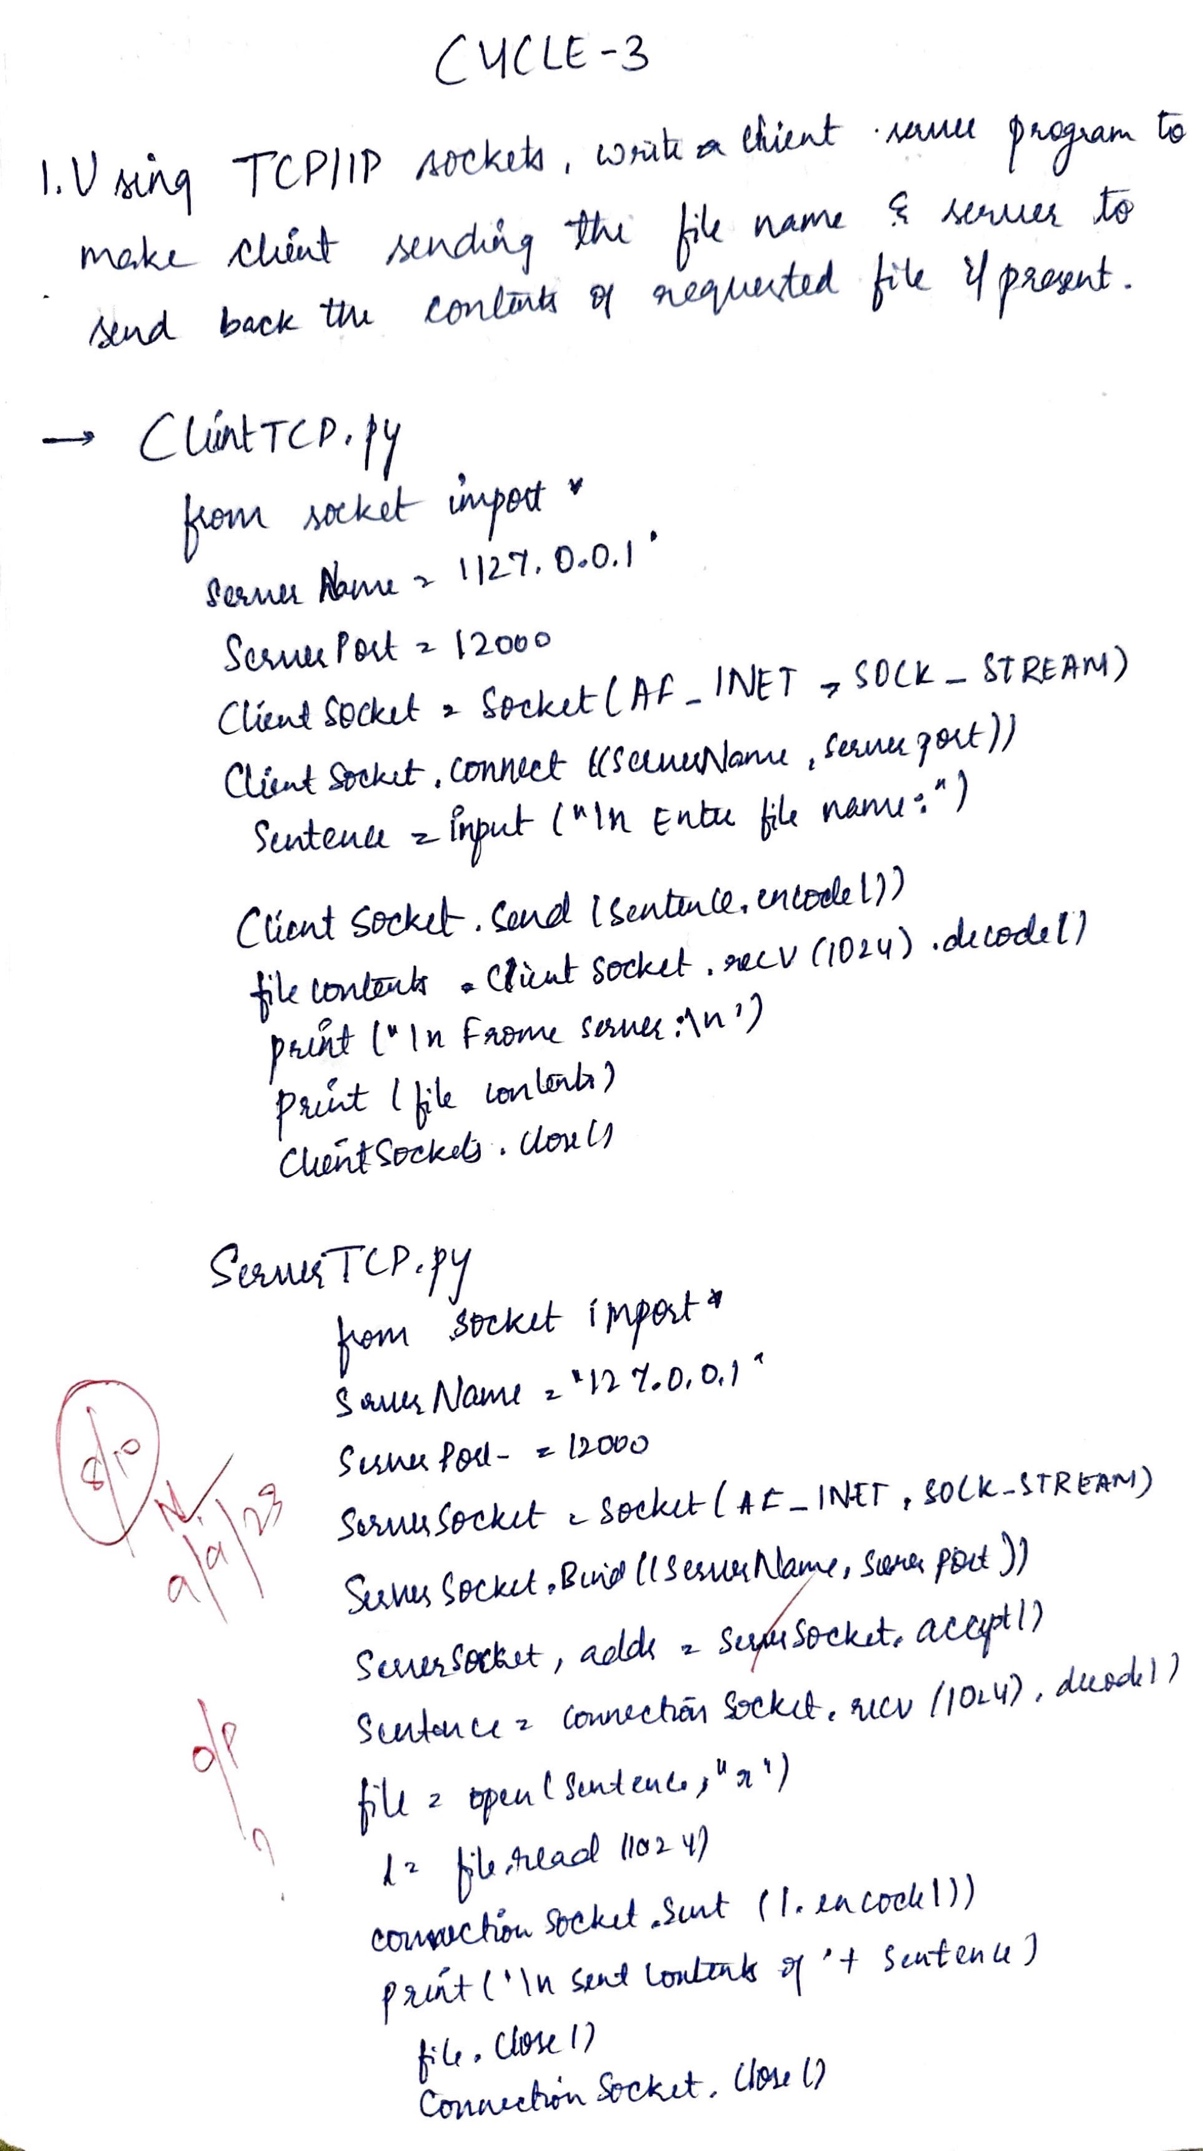 CYCLE-3
1. Using TCP/IP sockets, write a client server program to
make client sending the file name & server to
send back the contents of requested file if present.
→ ClintTCP.py
from socket import *
Server Name = '127.0.0.1'
Server Port = 12000
Client Socket = Socket (AF_INET, SOCK_STREAM)
Client Socket. connect ((ServerName, server port))
Sentence = input ("\n Enter file name:")
Client Socket. Send (sentence. encode())
file contents = Client Socket. recv (1024) .decode()
print ("\n Frome server :\n')
print (file contents)
Client Sockets. close()
ServerTCP.py
from socket import *
Server Name = "127.0.0.1"
Server Port = 12000
Server Socket = Socket (AF_INET, SOCK_STREAM)
Server Socket. Bind ((ServerName, Server port))
Server Socket, adds = Server Socket. accept()
Sentence = connection Socket. recv (1024). decode()
8/10
N.
9/9/23
file = open (Sentence, "r")
O/P
?
l = file.read (1024)
connection Socket. Sent (l. encode())
print ('\n Sent contents of '+ Sentence)
file. Close ()
Connection Socket. Close ()